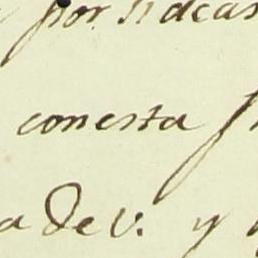 por si acas
con esta
a de v. y